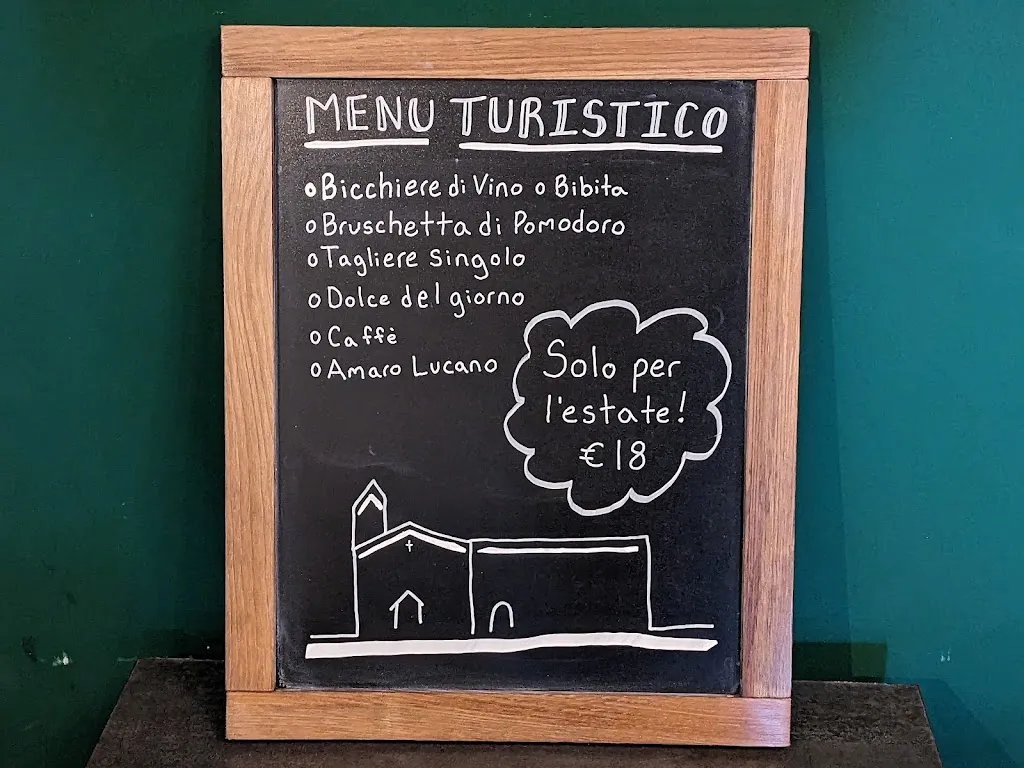 MENU TURISTICO
Bicchiere di Vino o Bibita
Bruschetta di Pomodoro
Tagliere Singolo
Dolce del giorno
Caffè
Amaro Lucano
Solo per
l'estate!
€18